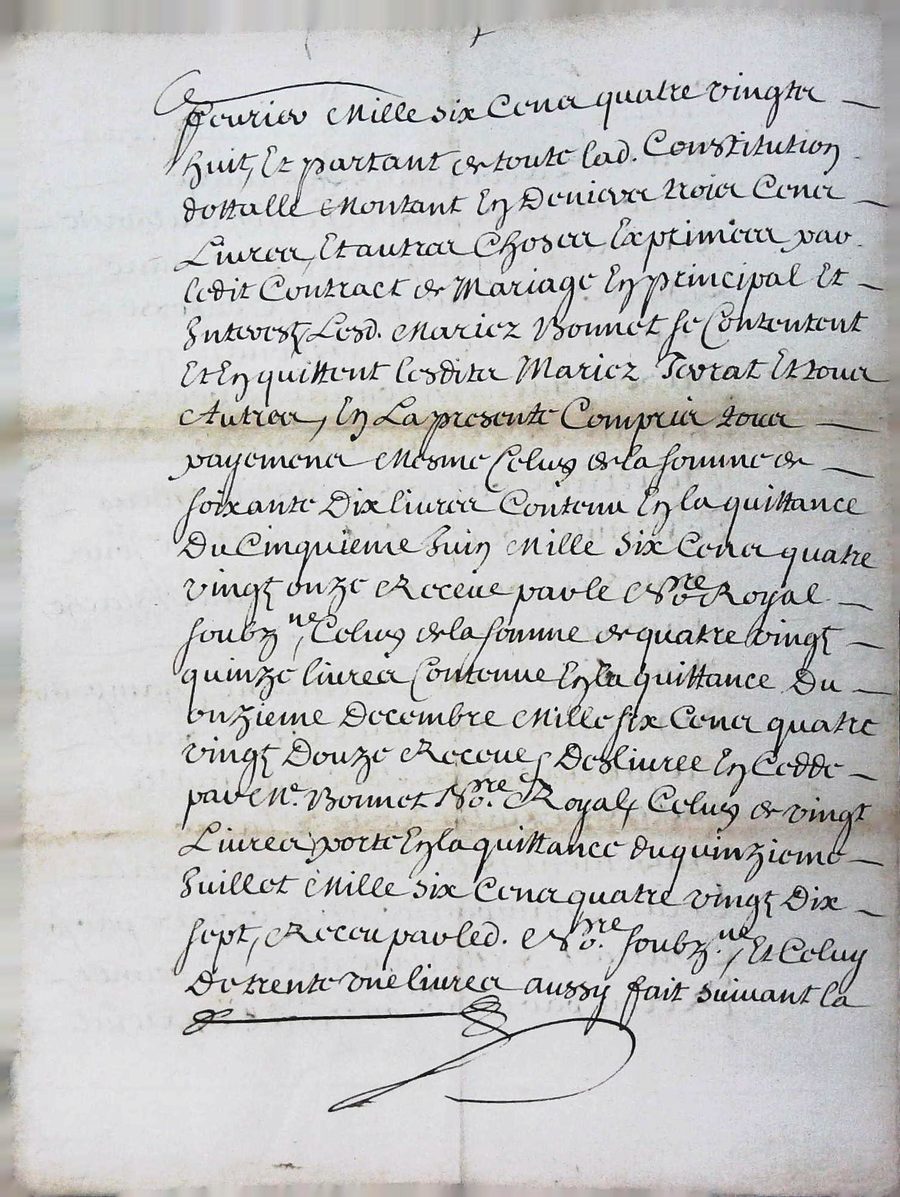 feurier Mille six Cens quatre vingts
huit, Et partant de toute lad. Constitution
dottalle Montant En Deniers trois Cens
Livres, Et autres Choses Exprimées par
ledit Contract de Mariage En principal Et
Interest, Lesd. Mariez Bonnet se Contentent
Et En quittent lesdits Mariez Teyrat Et tous
Autres, En La presente Compris tous
payemens Mesme Celuy de la somme de
soixante Dix livres Contenu En la quittance
Du Cinquieme Juin Mille six Cens quatre
vingt onze Receue par le No.re Royal
soubz.né, Celuy de la somme de quatre vingt
quinze livres Contenue En la quittance Du
onzieme Decembre Mille six Cens quatre
vingt Douze Receue, Deslivrée En Cedde
par Me. Bonnet No.re Royal, Celuy de vingt
Livres porté En la quittance du quinzieme
Juillet Mille six Cens quatre vingt Dix
sept, Receu par led. No.re soubz.né, Et Celuy
De trente une livres aussy fait suivant la